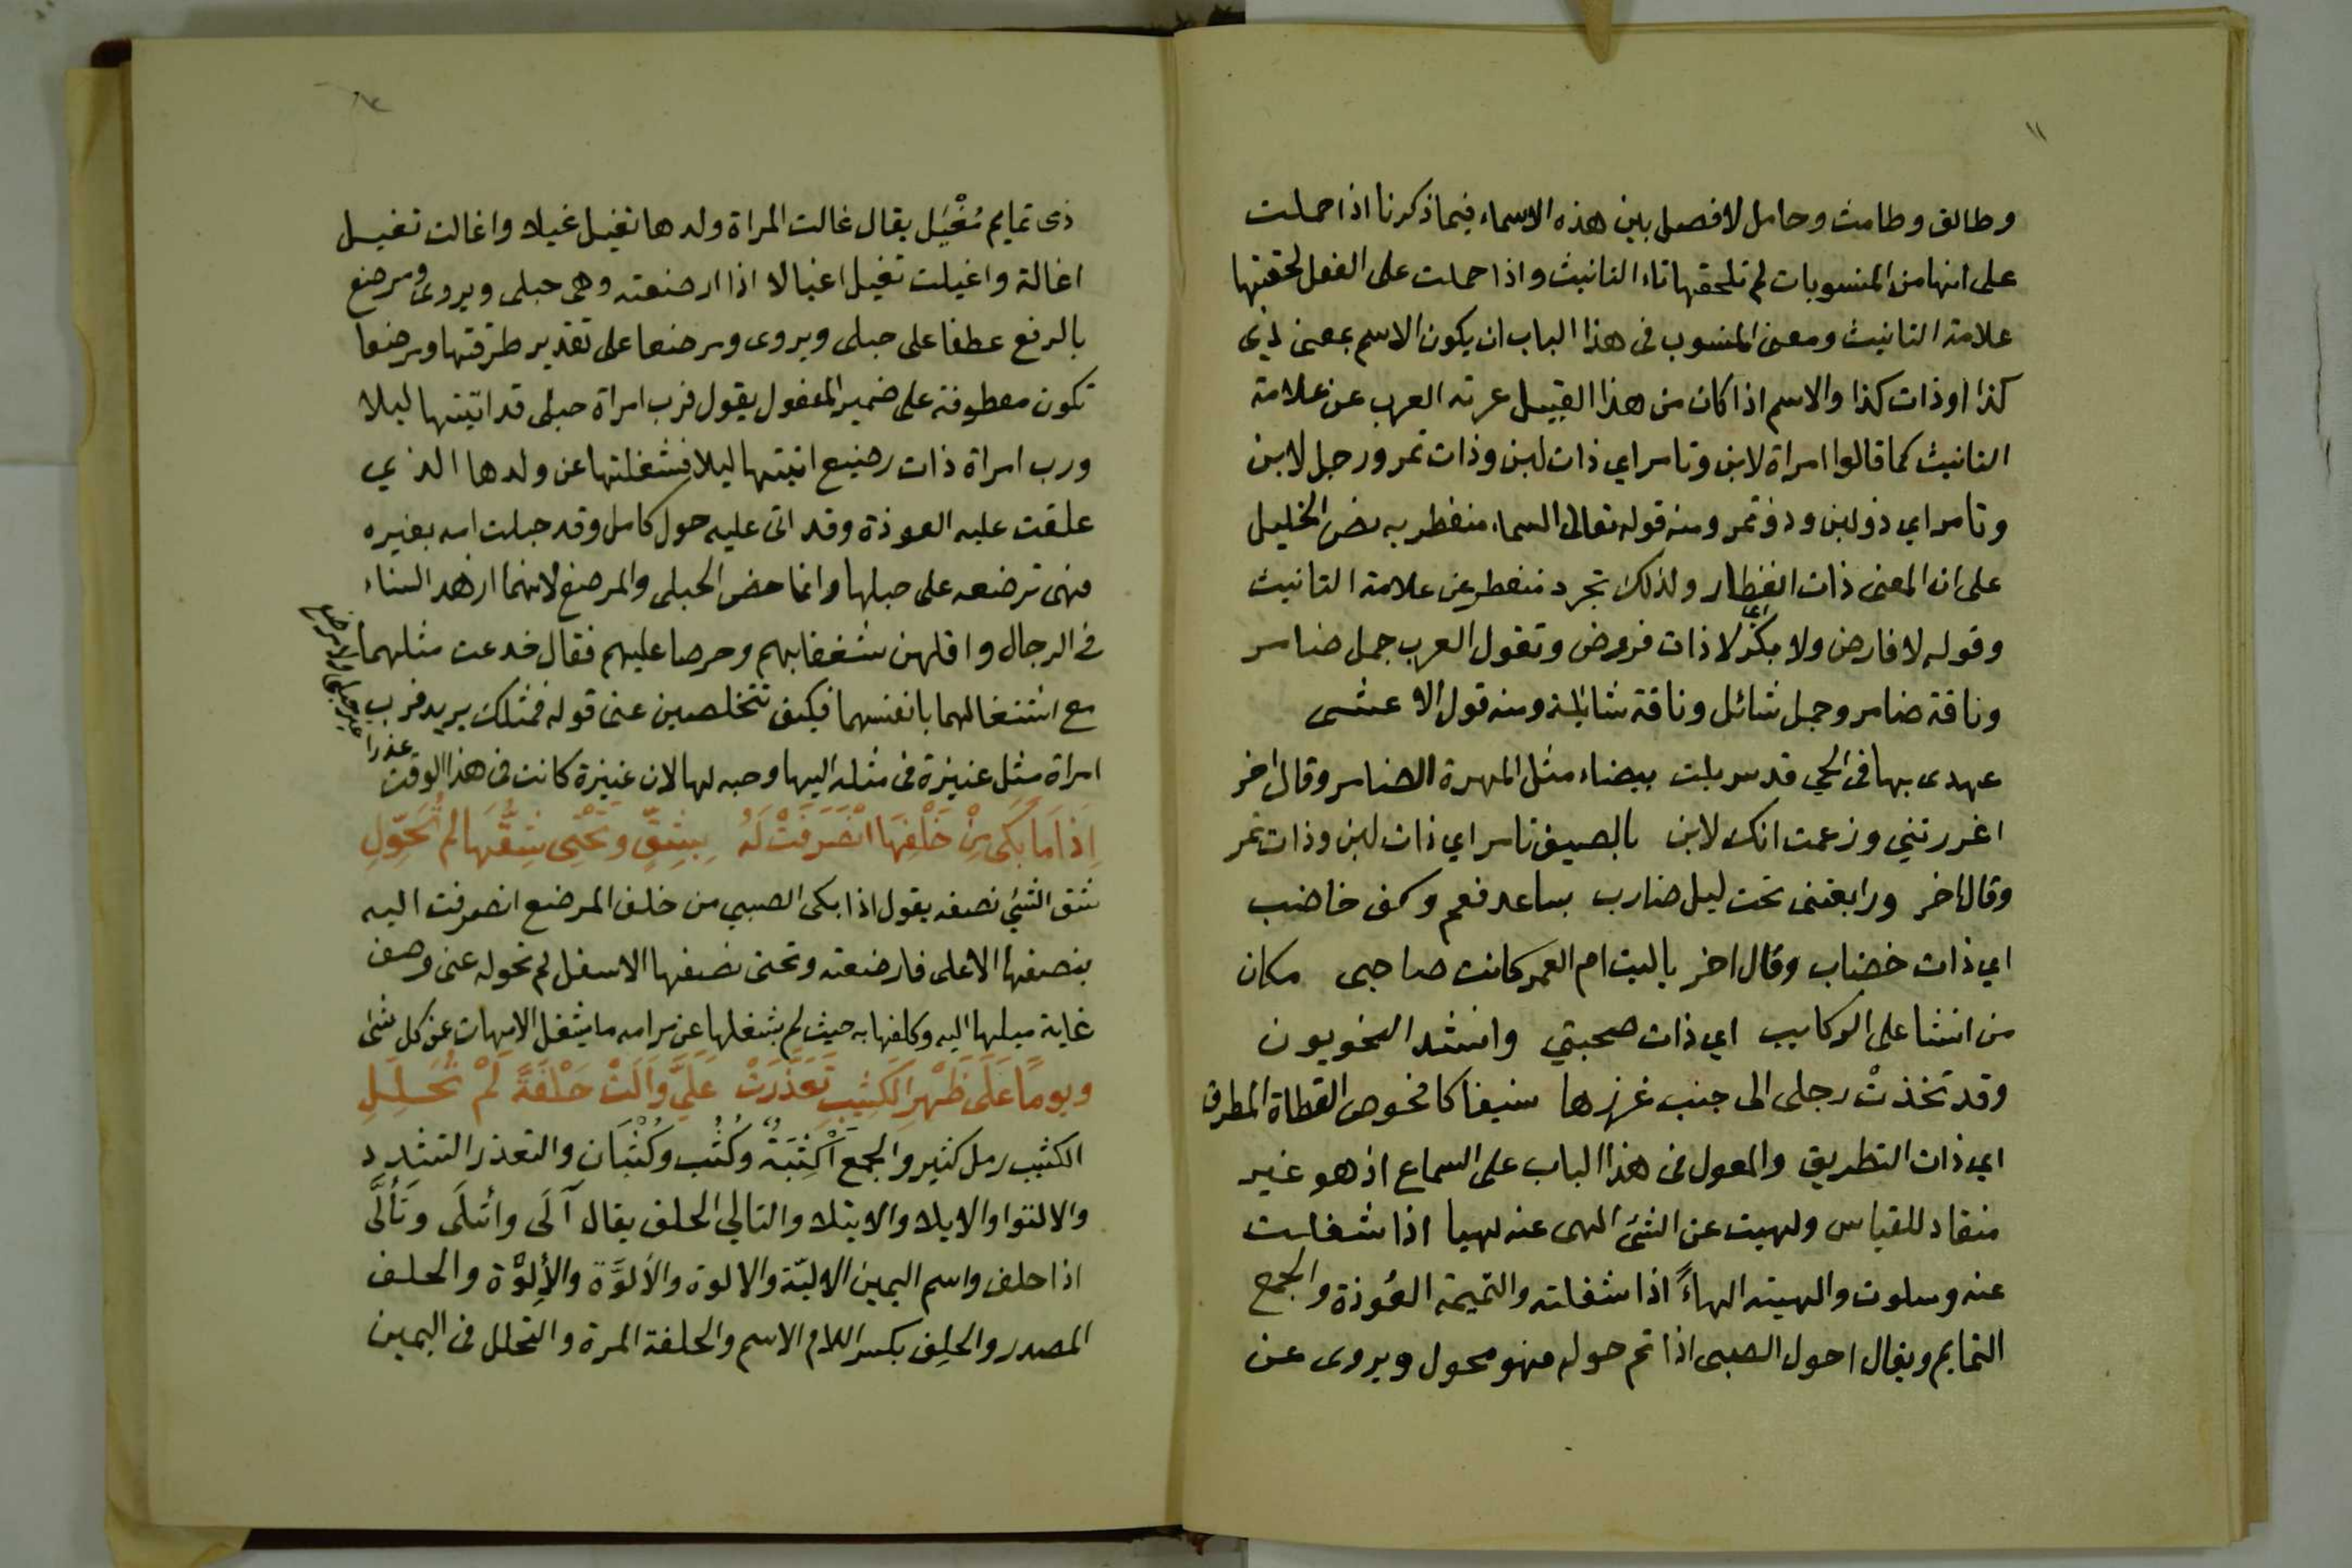 ١١
وطالق وطامث وحامل لا فصل بين هذه الاسماء فيما ذكرنا اذا حملت
على انها من المنسوبات لم تلحقها تاء التانيث واذا حملت على الفعل لحقتها
علامة التانيث ومعنى المنسوب فى هذا الباب ان يكون الاسم بمعنى ذي
كذا او ذات كذا والاسم اذا كان من هذا القبيل عرته العرب عن علامة
التانيث كما قالوا امراة لابن وتامر اي ذات لبن وذات تمر ورجل لابن
وتامر اي ذو لبن وذو تمر ومنه قوله تعالى السماء منفطر به نص الخليل
على ان المعنى ذات انفطار ولذلك تجرد منفطر عن علامة التانيث
وقوله لا فارض ولا بكر اى لا ذات فروض وتقول العرب جمل ضامر
وناقة ضامر وجمل شائل وناقة شائلة ومنه قول الاعشى
عهدى بها فى الحي قد سربلت بيضاء مثل المهرة الضامر وقال اخر
اغررتني وزعمت انك لابن بالصيف تامر اي ذات لبن وذات تمر
وقال اخر ورابعتنى تحت ليل ضارب بساعد فعم وكف خاضب
اي ذات خضاب وقال اخر ياليت ام العمر كانت صاحبى مكان
من انشا على الركايب اي ذات صحبتي وانشد النحويون
وقد تخذت رجلى الى جنب غرزها سنيفا كافحوص القطاة المطرق
اي ذات التطريق والمعول فى هذا الباب على السماع اذ هو غير
منقاد للقياس ولهيت عن الشئ الهى عنه لهيا اذا شغلت
عنه وسلوت والهيته الهاءً اذا شغلته والتميمة العُوذة والجمع
التمايم ويقال احول الصبى اذا تم حوله فهو محول ويروى عن
ذى تمايم مُغْيَل يقال غالت المراة ولدها تغيل غيلا واغالت تغيل
اغالة واغيلت تغيل اغيالا اذا ارضعته وهى حبلى ويروى ومرضع
بالرفع عطفا على حبلى ويروى ومرضعا على تقدير طرقتها ومرضعا
تكون معطوفة على ضمير المفعول يقول فرب امراة حبلى قد اتيتها ليلا
ورب امراة ذات رضيع اتيتها ليلا فشغلتها عن ولدها الذي
علقت عليه العوذة وقد اتى عليه حول كامل وقد حبلت امه بغيره
فهى ترضعه على حبلها وانما خص الحبلى والمرضع لانهما ازهد النساء
فى الرجال واقلهن شغفا بهم وحرصا عليهم فقال خدعت مثلهما
مع اشتغالهما بانفسهما فكيف تتخلصين عنى قوله فمثلك يريد فرب
امراة مثل عنيزة فى مثله اليها وحبه لها لان عنيزة كانت فى هذا الوقت عذرا
اِذَا مَا بَكَى مِنْ خَلْفِهَا انْصَرَفَتْ لَهُ بِشِقٍّ وَتَحْتِى شِقُّهَا لم تُحَوَّلِ
شق الشئ نصفه يقول اذا بكى الصبي من خلف المرضع انصرفت اليه
بنصفها الاعلى فارضعته وتحتى نصفها الاسفل لم تحوله عنى وصف
غاية ميلها اليه وكلفها به حيث لم يشغلها عن مرامه ما يشغل الامهات عن كل شئ
ويومًا عَلَى ظَهْرِ الكَثِيبِ تَعَذَّرَتْ عَلَيَّ وَالَتْ حَلْفَةً لَمْ تُحَلَّلِ
الكثيب رمل كثير والجمع اَكْثِبَةٌ وَكُثُب وكُثْبَان والتعذر التشدد
والالتوا والايلا والايتلا والتالي الحلف يقال آلَى وأتَلَى وَتَأَلَّى
اذا حلف واسم اليمين الاليّة والالوة والاَلوَّة والأِلوّة والحلف
المصدر والحلِف بكسر اللام الاسم والحلفة المرة والتحلل فى اليمين